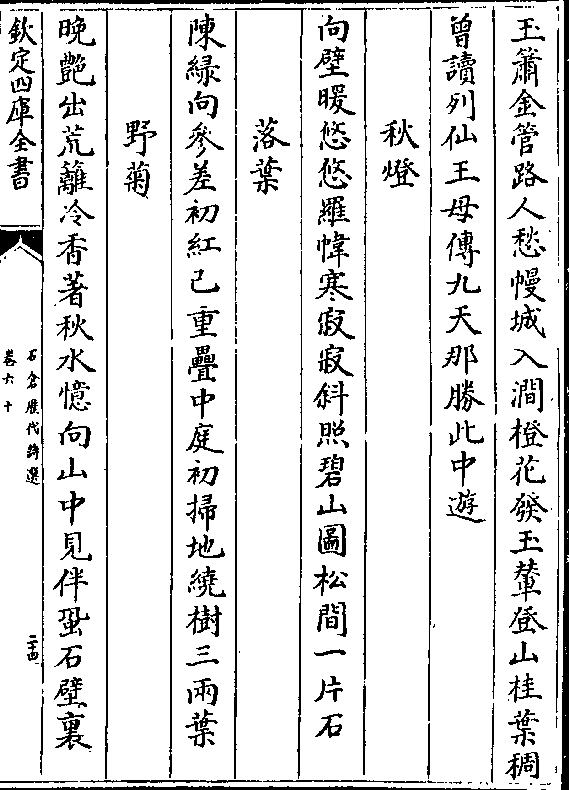 玉簫金管路人愁幔城入澗橙花發玉輦登山桂葉稠
曾讀列仙王母傳九天那勝此中遊
秋燈
向壁暖悠悠羅幃寒寂寂斜照碧山圖松間一片石
落葉
陳綠向參差初紅已重疊中庭初掃地繞樹三兩葉
野菊
晚艷出荒籬冷香著秋水憶向山中見伴蛩石壁裏
欽定四庫全書
石倉歷代詩選
卷六十
二十四